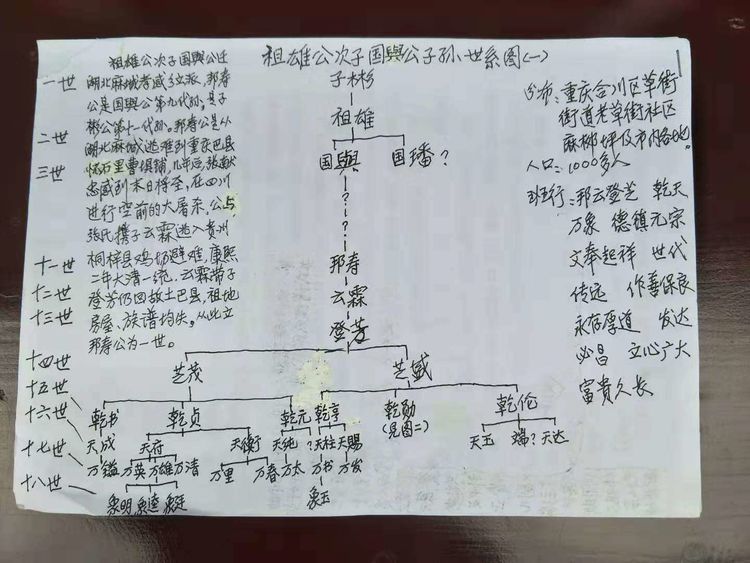 祖雄公次子国與公子孙世系图(一)
祖雄公次子国與公迁
湖北麻城孝感乡立派,邦寿
公是国與公第九代孙,是子
彬公第十一代孙。邦寿公是从
湖北麻城逃难到重庆巴县
怀石里曹俱铺,几年后,张献
忠威到本日将至,在四川
进行空前的大屠杀,公与
张氏携子云霖逃入贵州
桐梓县鸡 避难,康熙
二年大清一统,云霖带子
登芳仍回故土巴县,祖地
房屋、族谱均失。从此立
邦寿公为一世。
分布:重庆合川区草街
街道老草街社区
麻柳坪及市内各地。
人口:1000多人
班行:邦云登芝 乾天
万象 德镇元宗
文奉起祥 世代
传远 作善保良
永存厚道 发达
必昌 立心广大
富貴久长
一世 子彬
二世 祖雄
三世 国與 国璠?
?
?
?
十一世 邦寿
十二世 云霖
十三世 登芳
十四世 芝茂 芝盛
十五世
十六世 乾书 乾贞 乾元 乾享 乾勋 乾伦
(見图二)
十七世 天成 天府 天衡 天纯 ? 天柱 天賜 天玉 端? 天达
万鎰 万英 万雄 万清 万里 万春 万太 万书 万发
十八世 象明 象逵 象廷 象玉